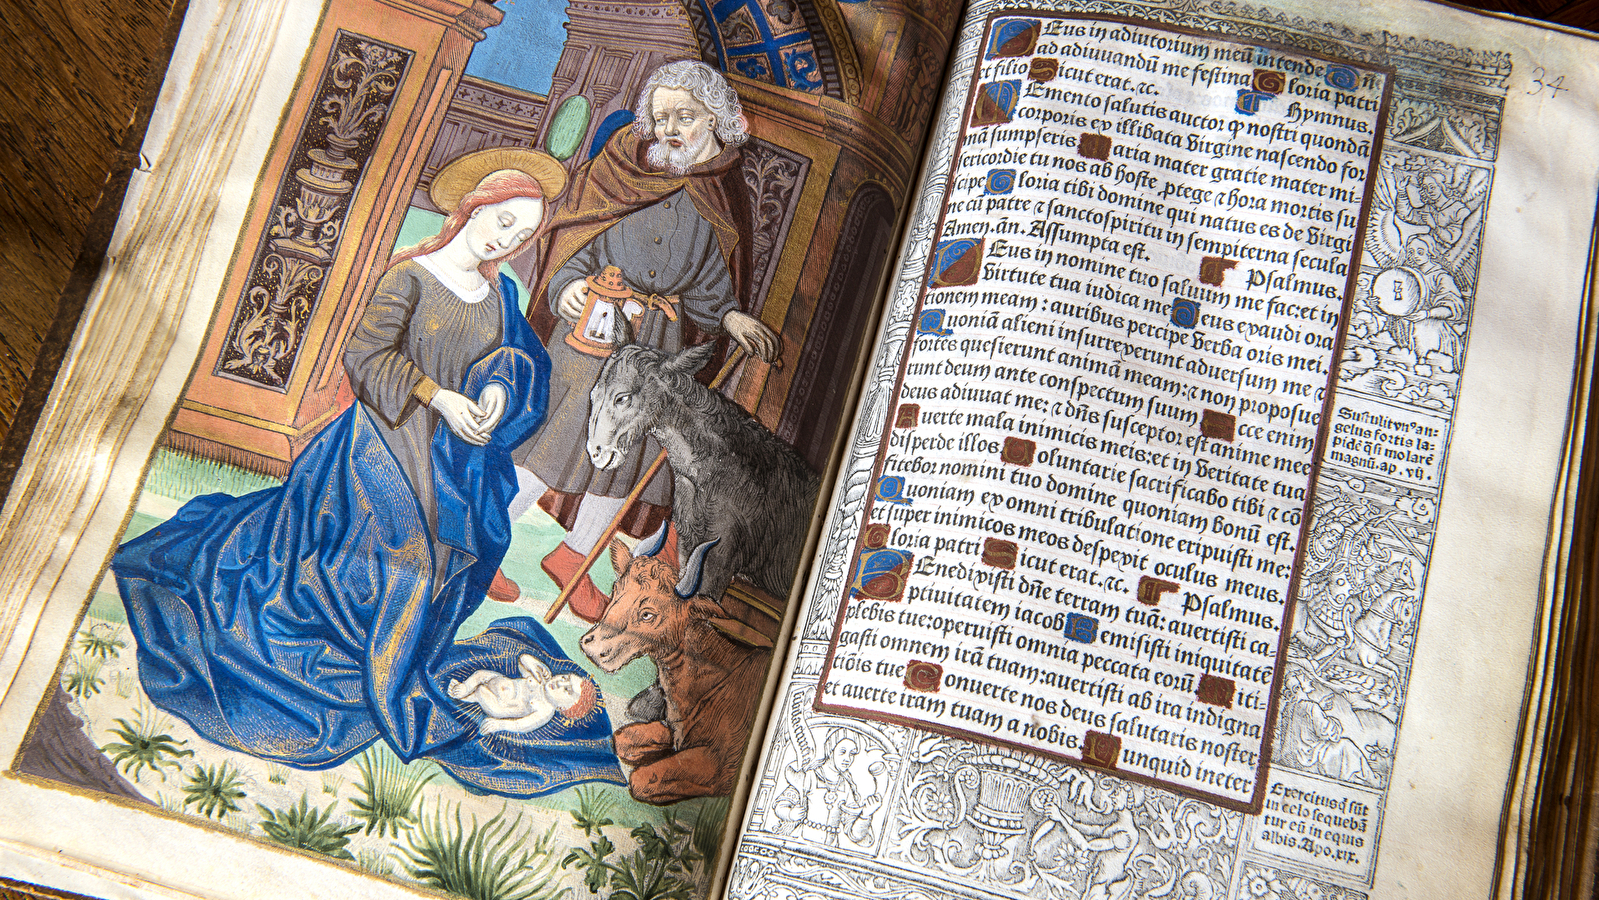 34
Deus in adiutorium meū intende Dn̄
ad adiuuandū me festina Gloria patri
et filio Sicut erat.⁊c. Hymnus.
Memento salutis auctor ꝙ nostri quondā
corporis ex illibata virgine nascendo for
mā sumpseris Maria mater gratie mater mi-
sericordie tu nos ab hoste ꝓtege ⁊ hora mortis su
scipe Gloria tibi domine qui natus es de virgi
ne cū patre ⁊ sanctospiritu in sempiterna secula
Amen.añ. Assumpta est. Psalmus.
Deus in nomine tuo saluum me fac:et in
virtute tua iudica me Deus exaudi ora
tionem meam: auribus percipe verba oris mei.
Quoniā alieni insurrexerunt aduersum me ⁊
fortes quesierunt animā meam:⁊ non proposue
runt deum ante conspectum suum Ecce enim
deus adiuuat me: ⁊ dñs susceptor est anime mee
Auerte mala inimicis meis:et in veritate tua
disperde illos Voluntarie sacrificabo tibi ⁊ cō
fitebor nomini tuo domine quoniam bonū est.
Quoniam ex omni tribulatione eripuisti me:
et super inimicos meos despexit oculus meus.
Gloria patri Sicut erat.⁊c. Psalmus.
Benedixisti dñe terram tuā: auertisti ca-
ptiuitatem iacob Remisisti iniquitatē
plebis tue:operuisti omnia peccata eorū Miti-
gasti omnem irā tuam:auertisti ab ira indigna
tiōis tue Conuerte nos deus salutaris noster
et auerte iram tuam a nobis. Nunquid ineter
Sustulit vnꝰ an-
gelus fortis la-
pidē q̄si molarē
magnū.ap.
Exercitus q̄ sūt
in celo sequebā
tur eū in equis
albis.Apo.xix.